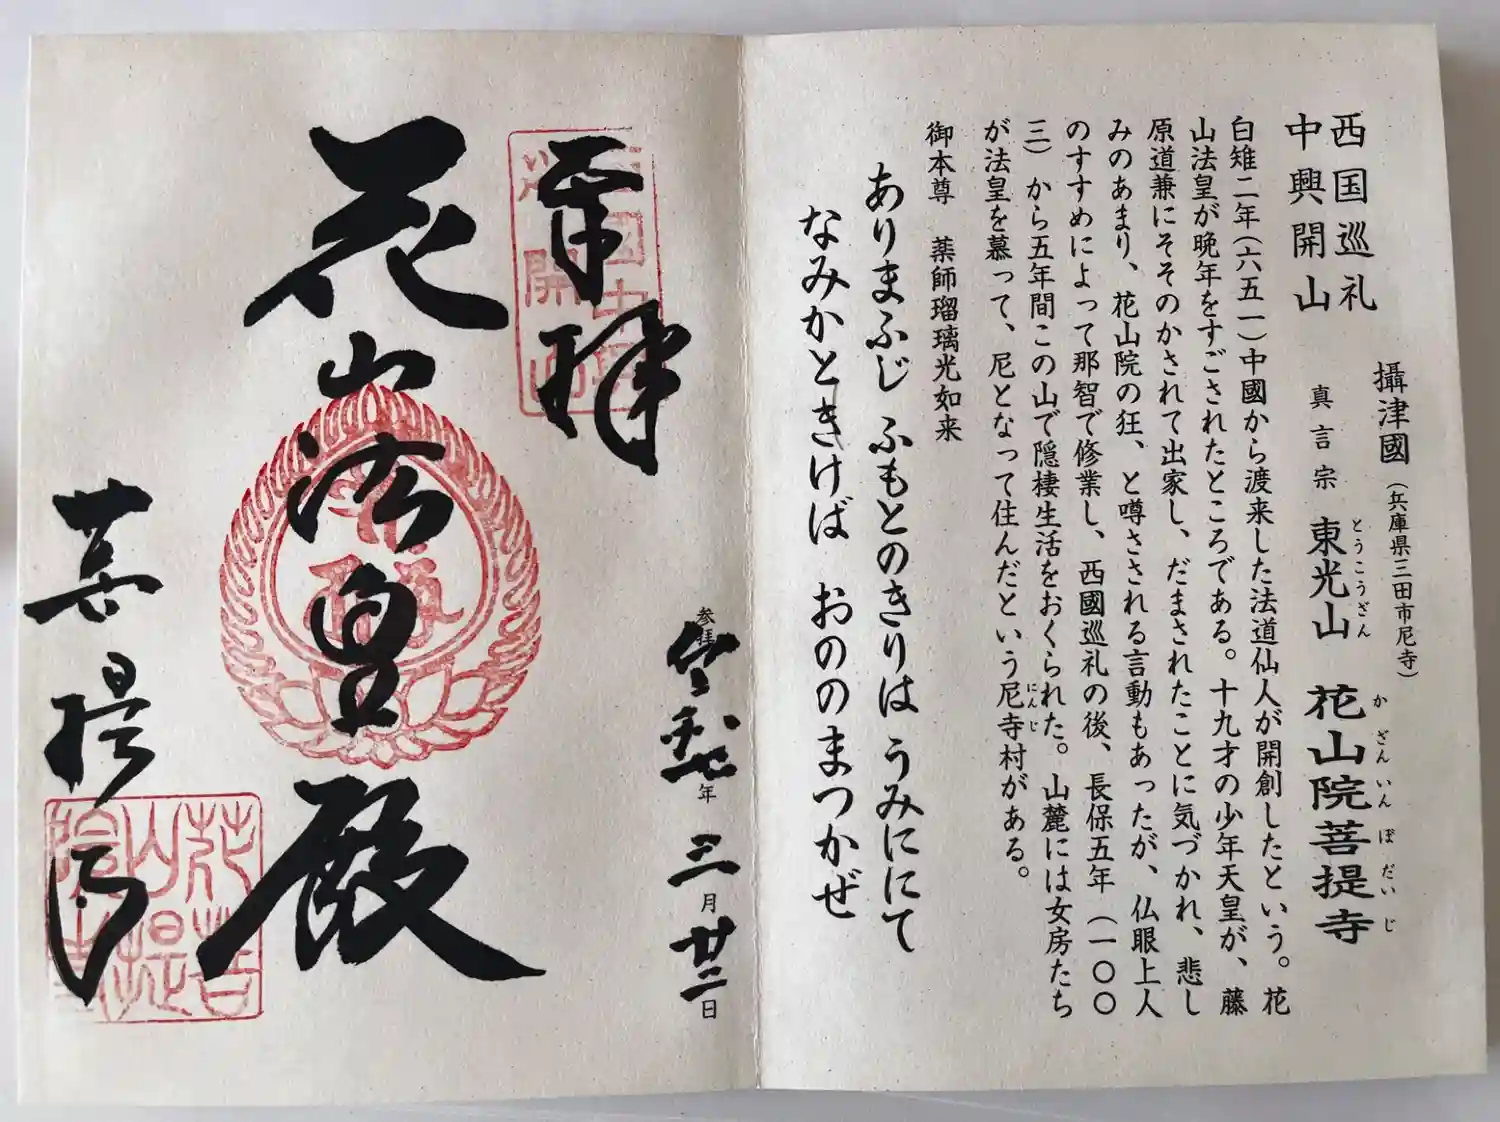 攝津國（兵庫県三田市尼寺）
西国巡礼
中興開山
真言宗 東光山 花山院菩提寺
とうこうざん かざんいんぼだいじ
白雉二年(六五一)中國から渡来した法道仙人が開創したという。花
山法皇が晩年をすごされたところである。十九才の少年天皇が、藤
原道兼にそそのかされて出家し、だまされたことに気づかれ、悲し
みのあまり、花山院の狂、と噂さされる言動もあったが、仏眼上人
のすすめによって那智で修業し、西國巡礼の後、長保五年（一〇〇
三）から五年間この山で隠棲生活をおくられた。山麓には女房たち
が法皇を慕って、尼となって住んだという尼寺村がある。
にんじ
御本尊 薬師瑠璃光如来
ありまふじ ふもとのきりは うみににて
なみかときけば おののまつかぜ
参拝 令和年 三月 廿二日
奉拝
西国中興開山
花山法皇殿
菩提寺
花山院菩提寺